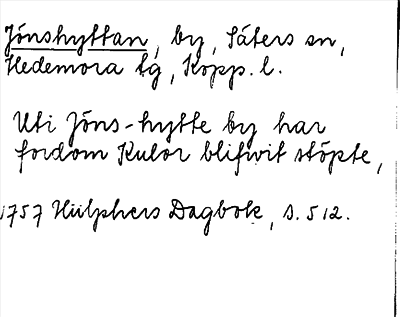 Jönshyttan, by, Säters sn,
Hedemora tg, Kopp. l.
Uti Jöns-hytte by har
fordom Kulor blifwit stöpte,
1757 Hülphers Dagbok, s. 512.